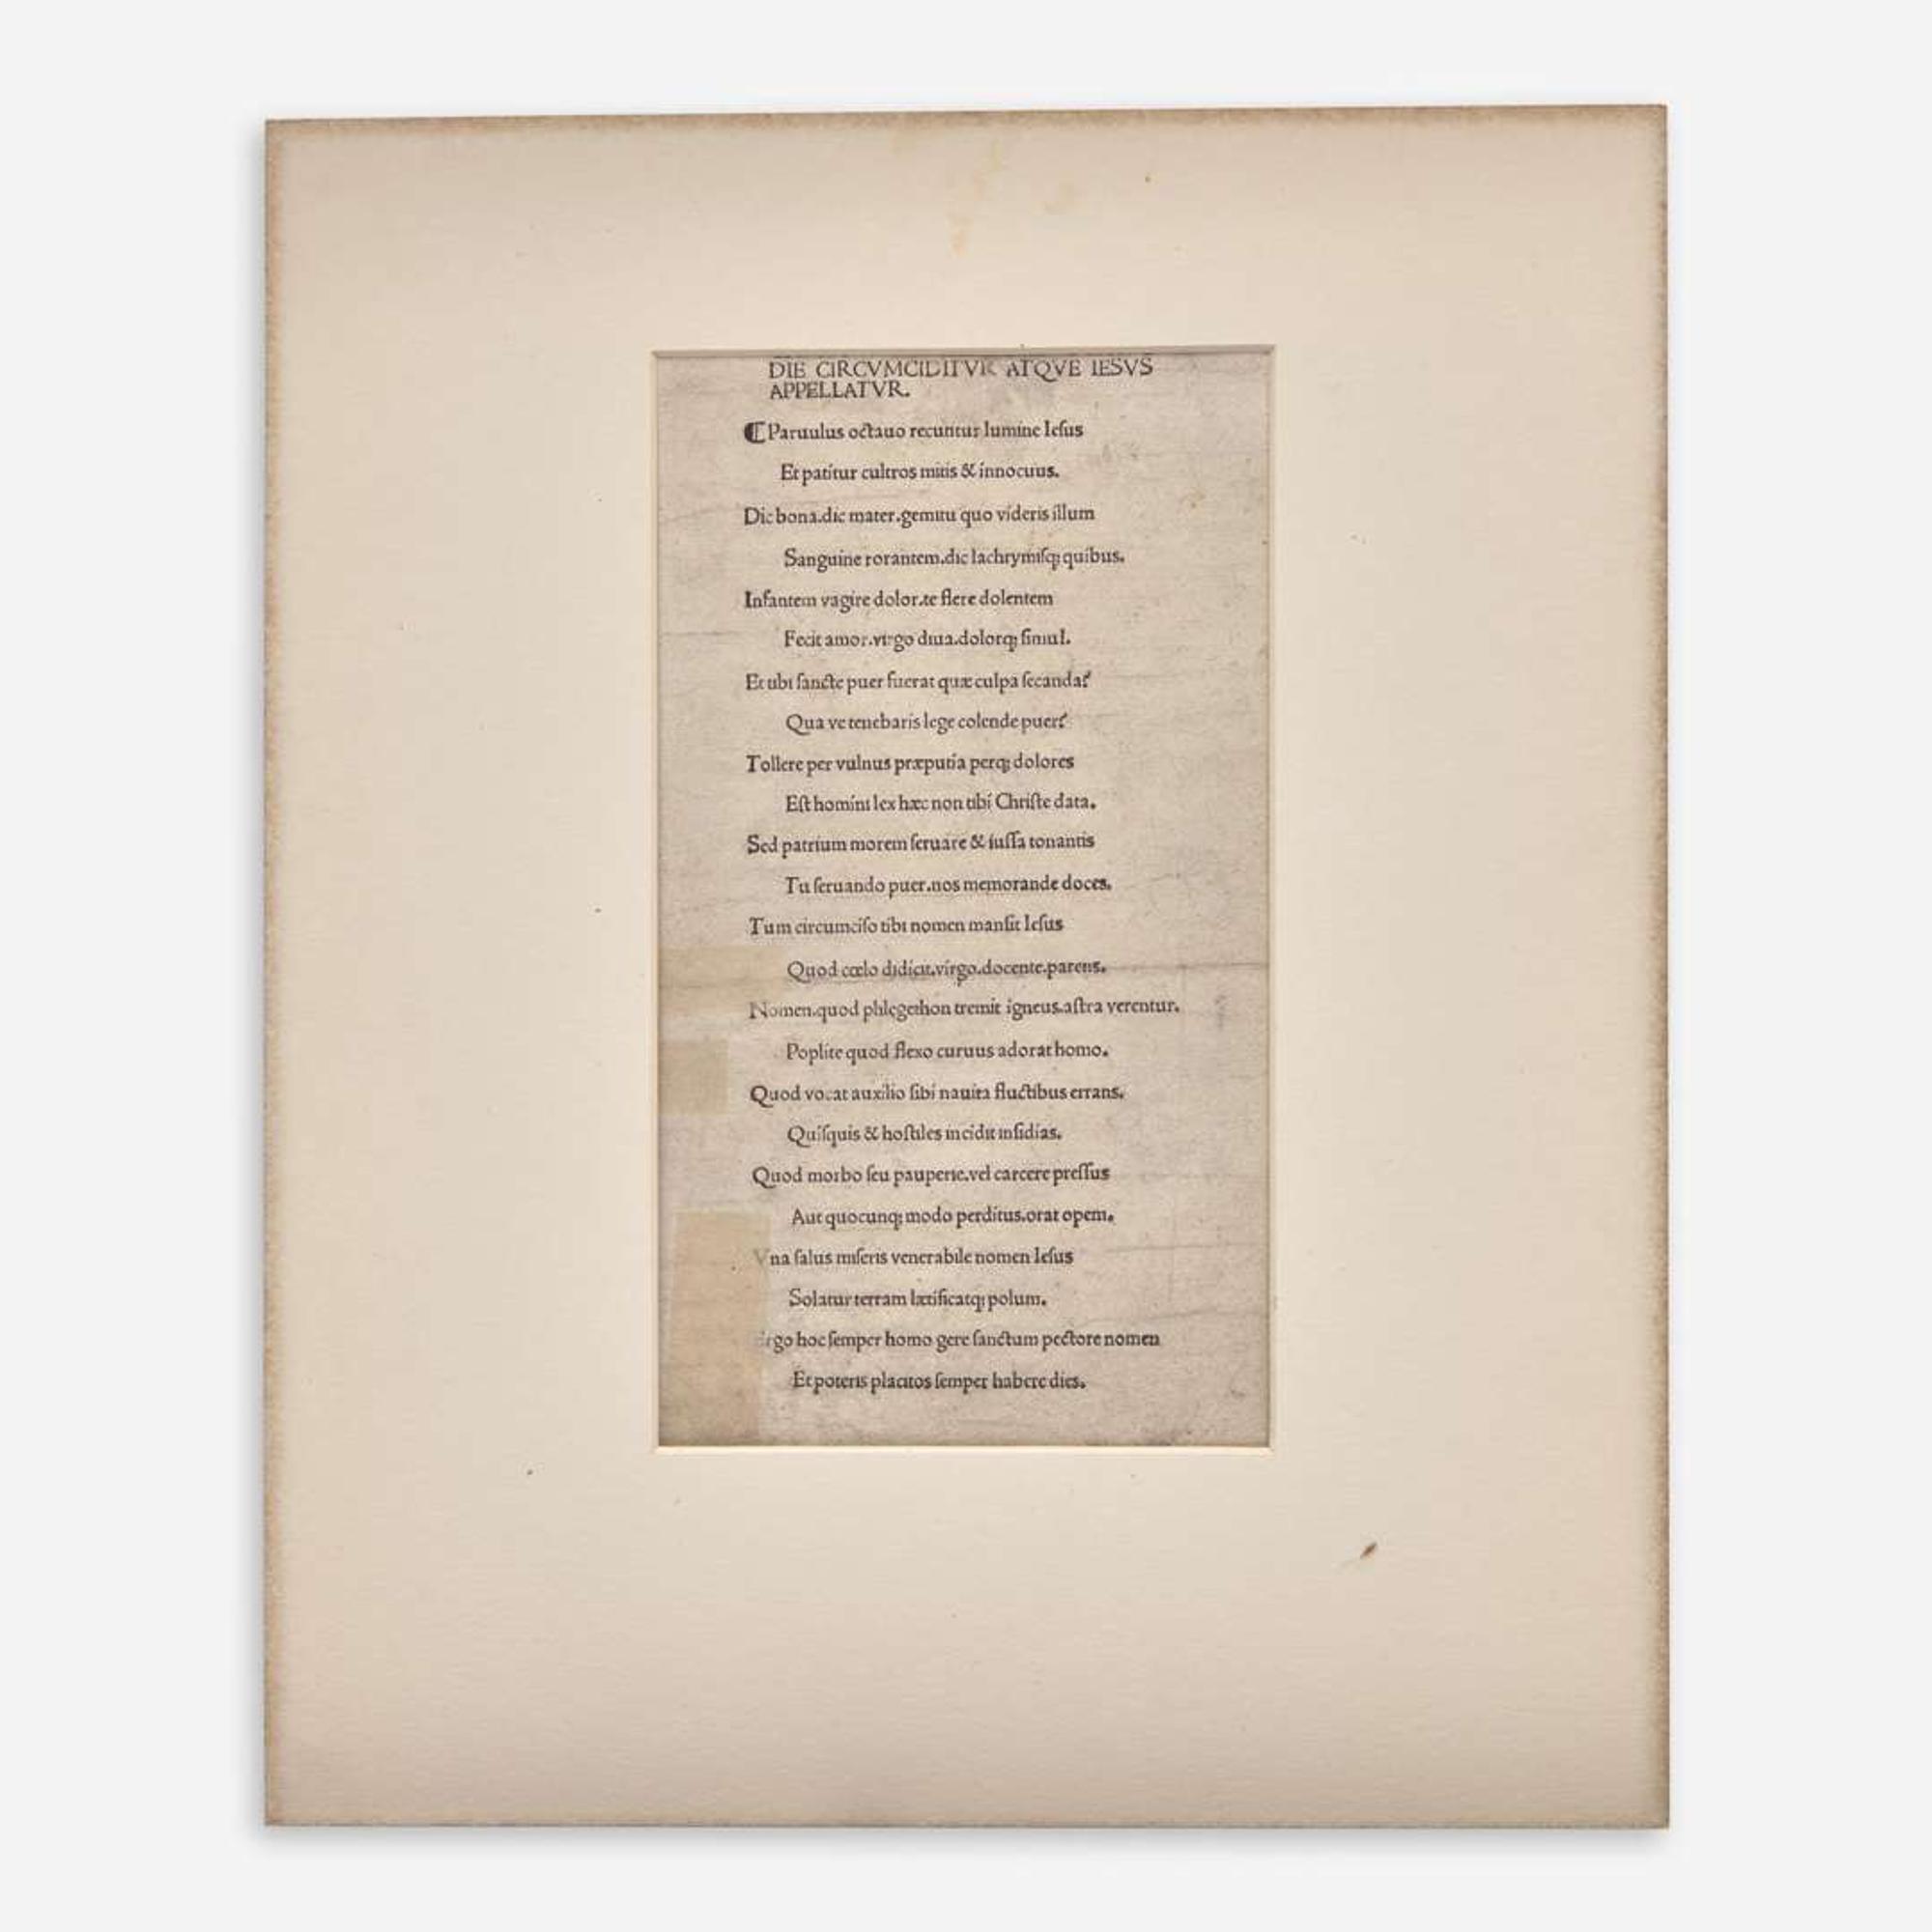 DIE CIRCVMCIDITVR ATQVE IESVS
APPELLATVR.
¶Paruulus octauo recutitur lumine Iesus
Et patitur cultros mitis & innocuus.
Dic bona.dic mater.gemitu quo videris illum
Sanguine rorantem.dic lachrymisq; quibus.
Infantem vagire dolor.te flere dolentem
Fecit amor.virgo diua.dolorq; simul.
Et ubi sancte puer fuerat quæ culpa secanda?
Qua ve tenebaris lege colende puer?
Tollere per vulnus præputia perq; dolores
Est homini lex hæc non tibi Christe data.
Sed patrium morem seruare & iussa tonantis
Tu seruando puer.nos memorande doces.
Tum circumciso tibi nomen mansit Iesus
Quod cœlo didicit.virgo.docente.parens.
Nomen.quod phlegethon tremit igneus.astra verentur.
Poplite quod flexo curuus adorat homo.
Quod vocat auxilio sibi nauita fluctibus errans.
Quisquis & hostiles incidit insidias.
Quod morbo seu pauperie.vel carcere pressus
Aut quocunq; modo perditus.orat opem.
Vna salus miseris venerabile nomen Iesus
Solatur terram lætificatq; polum.
Ergo hoc semper homo gere sanctum pectore nomen
Et poteris placitos semper habere dies.